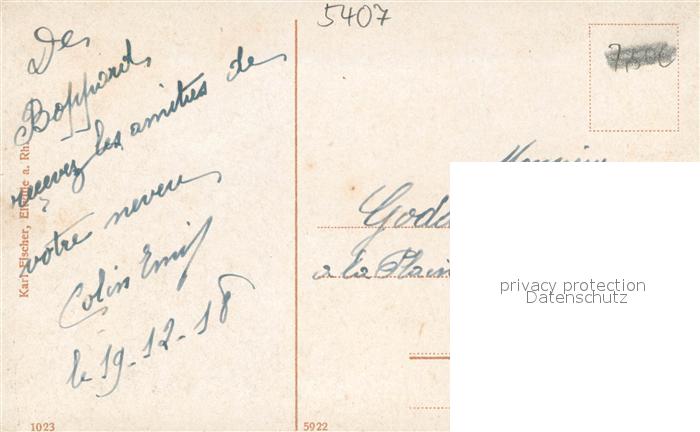 5407
7,50€
De
Boppard
recevez les amitiés de
votre neveu
Colin Emil
le 19-12-18
Monsieur
Godu
a la Plain
privacy protection
Datenschutz
Karl Fischer, a. Rh.
1023
5922